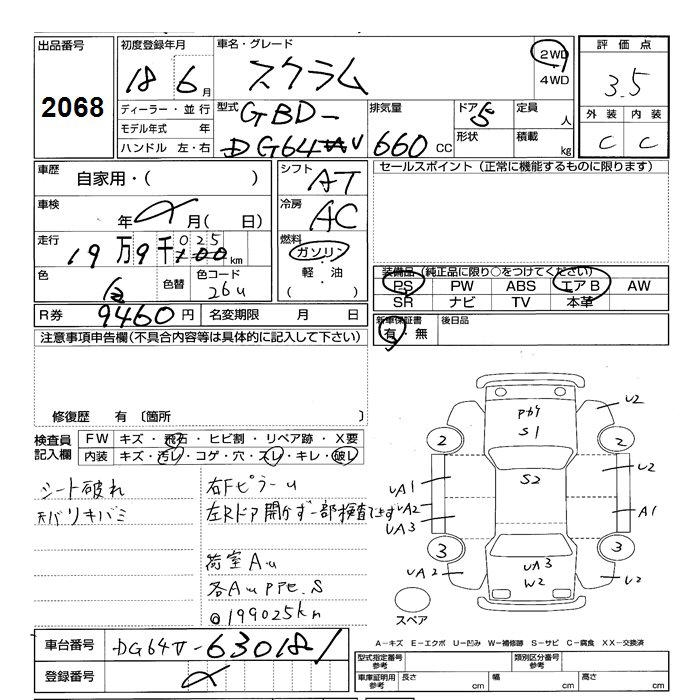 出品番号 2068
初度登録年月 18 6月
ディーラー・並行
モデル年式 年
ハンドル 左・右
車名・グレード スクラム 2WD
4WD
型式 GBD-
DG64V
排気量 660 CC
ドア 5
形状
定員 人
積載 kg
評価点
3.5
外装 内装
C C
車歴 自家用・( )
車検 年 月( 日)
走行 19万9千025km
色 白 色替 色コード 26u
R券 9460円 名変期限 月 日
シフト AT
冷房 AC
燃料 ガソリン
軽・油
( )
セールスポイント(正常に機能するものに限ります)
装備品(純正品に限り○をつけてください)
PS PW ABS エアB AW
SR ナビ TV 本革
新車保証書 後日品
有・無
注意事項申告欄(不具合内容等は具体的に記入して下さい)
修復歴 有〔箇所 〕
検査員記入欄 FW キズ・飛石・ヒビ割・リペア跡・X要
内装 キズ・汚レ・コゲ・穴・スレ・キレ・破レ
シート破れ
右Fピラーu
左Rドア開かず一部検査できず
荷室Au
各AuPPE.S
@199025km
P69
S1
S2
U2
2 2
U2
UA1
UA2
UA3
A1
3 3
UA3
W2
UA2
U2
スペア
A-キズ E-エクボ U-凹み W-補修跡 S-サビ C-腐食 XX-交換済
車台番号 DG64V-630181
登録番号
型式指定番号参考 類別区分番号参考
車庫証明用参考 長さ cm 幅 cm 高さ cm